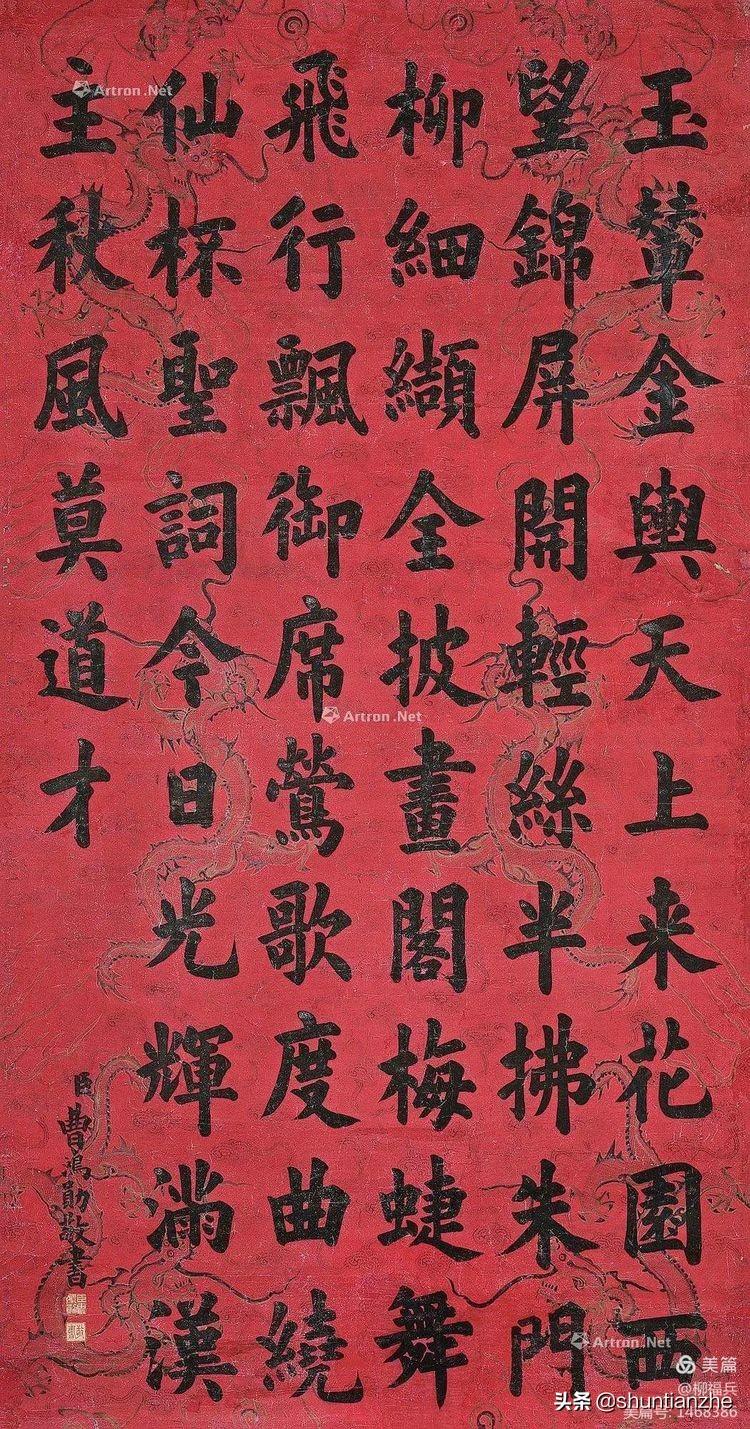 玉輦金輿天上来花園西
望錦屏開輕絲半拂朱門
柳細纈全披畫閣梅蜨舞
飛行飄御席鶯歌度曲繞
仙杯聖詞今日光輝滿漢
主秋風莫道才
臣曹鴻勛敬書
Artron.Net
Artron.Net
Artron.Net
美篇
@柳福兵
美篇号: 1468386
头条 @shuntianzhe